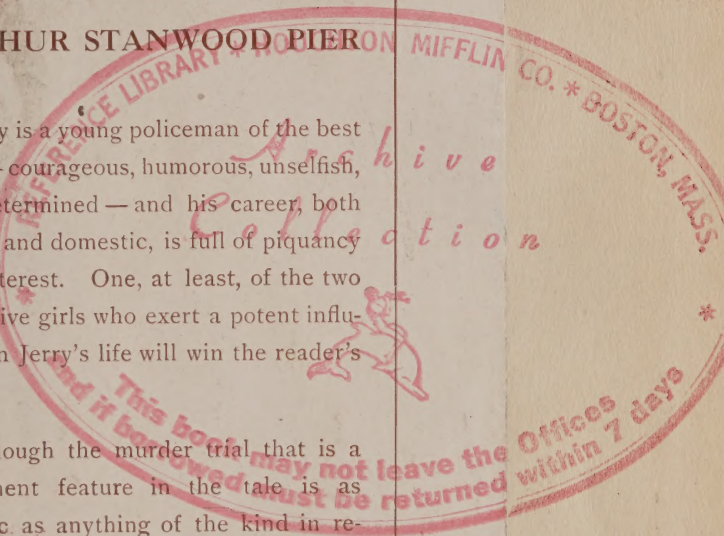 HUR STANWOOD PIER
y is a young policeman of the best
courageous, humorous, unselfish,
termined — and his career, both
and domestic, is full of piquancy
terest. One, at least, of the two
ive girls who exert a potent influ-
n Jerry's life will win the reader's
ough the murder trial that is a
nent feature in the tale is as
c as anything of the kind in re-
REFERENCE LIBRARY * HOUGHTON MIFFLIN CO. * BOSTON, MASS. *
Archive
Collection
This book may not leave the Offices
and if borrowed must be returned within 7 days